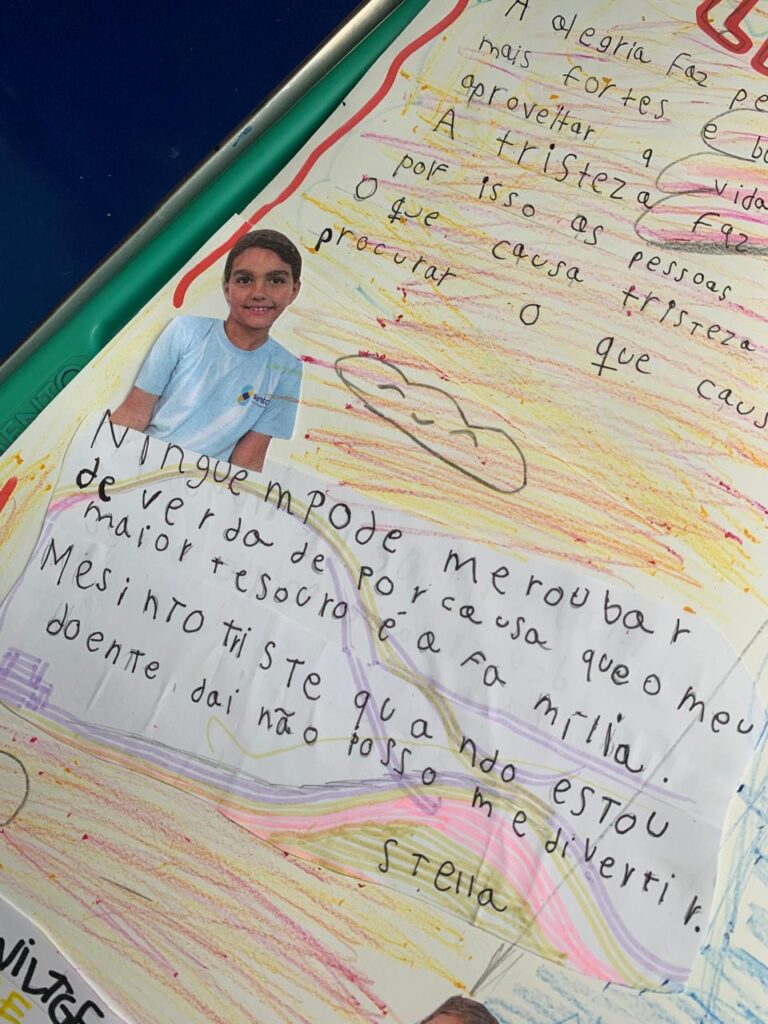 A alegria faz
mais fortes e
aproveitar a vida
A tristeza faz
por isso as pessoas
O que causa tristeza
procurar o que
Sinto
Ninguem pode me roubar
de verda de por causa que o meu
maior tesouro é a fa mília.
Me sinto triste quando estou
doente dai não posso me divertir.
Stella